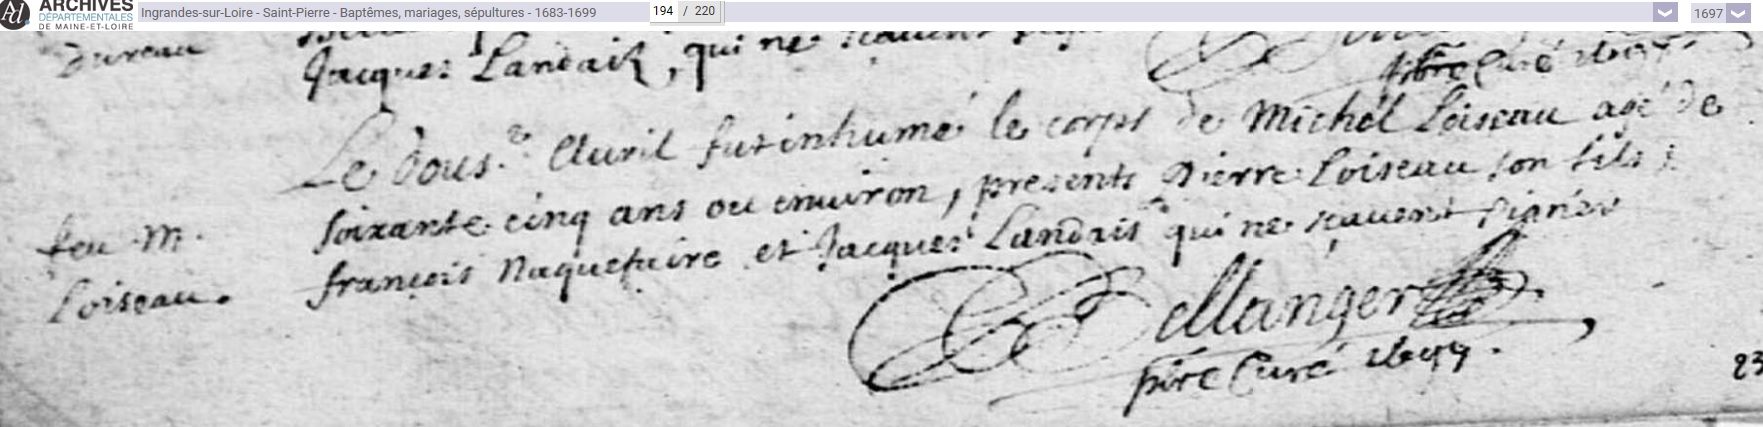 ARCHIVES
DÉPARTEMENTALES
DE MAINE-ET-LOIRE
Ingrandes-sur-Loire - Saint-Pierre - Baptêmes, mariages, sépultures - 1683-1699
194 / 220
1697
dureau
Jacques Landais, qui ne scauent
pbre Curé
Le dous.e Auril fut inhumé le corps de Michel Loiseau agé de
soixante cinq ans ou enuiron, presents Pierre Loiseau son fils,
feu M.
françois Naquefaire et Jacques Landais qui ne scauent signer
Loiseau.
Bellanger
pbre Curé
23